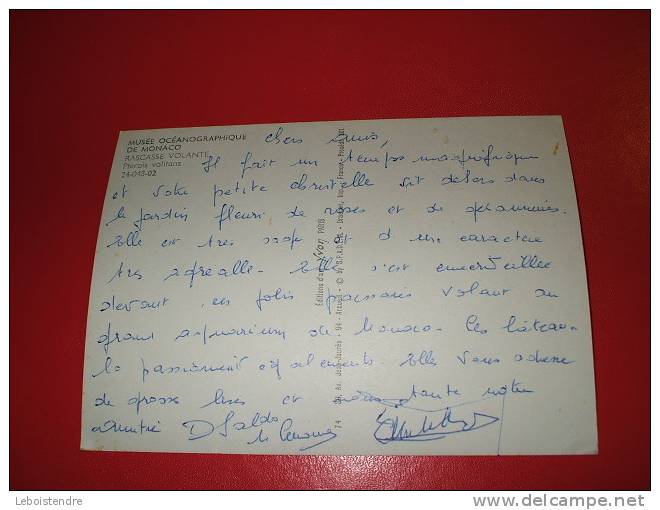 MUSÉE OCÉANOGRAPHIQUE
DE MONACO
RASCASSE VOLANTE
Pterois volitans
24-048-02
chers amis,
Il fait un temps magnifique
et votre petite christelle vit dehors dans
le jardin fleuri de roses et de géraniums.
Elle est très sage et d'une caractère
très agréable. Elle s'est émerveillée
devant ces jolis poissons volant au
grand aquarium de Monaco. Les bâteaux
la passionnent également. Elle vous adresse
de grosses bises et toute notre
amitié
Éditions d'art Yvon PARIS
Leboistendre
delcampe.net